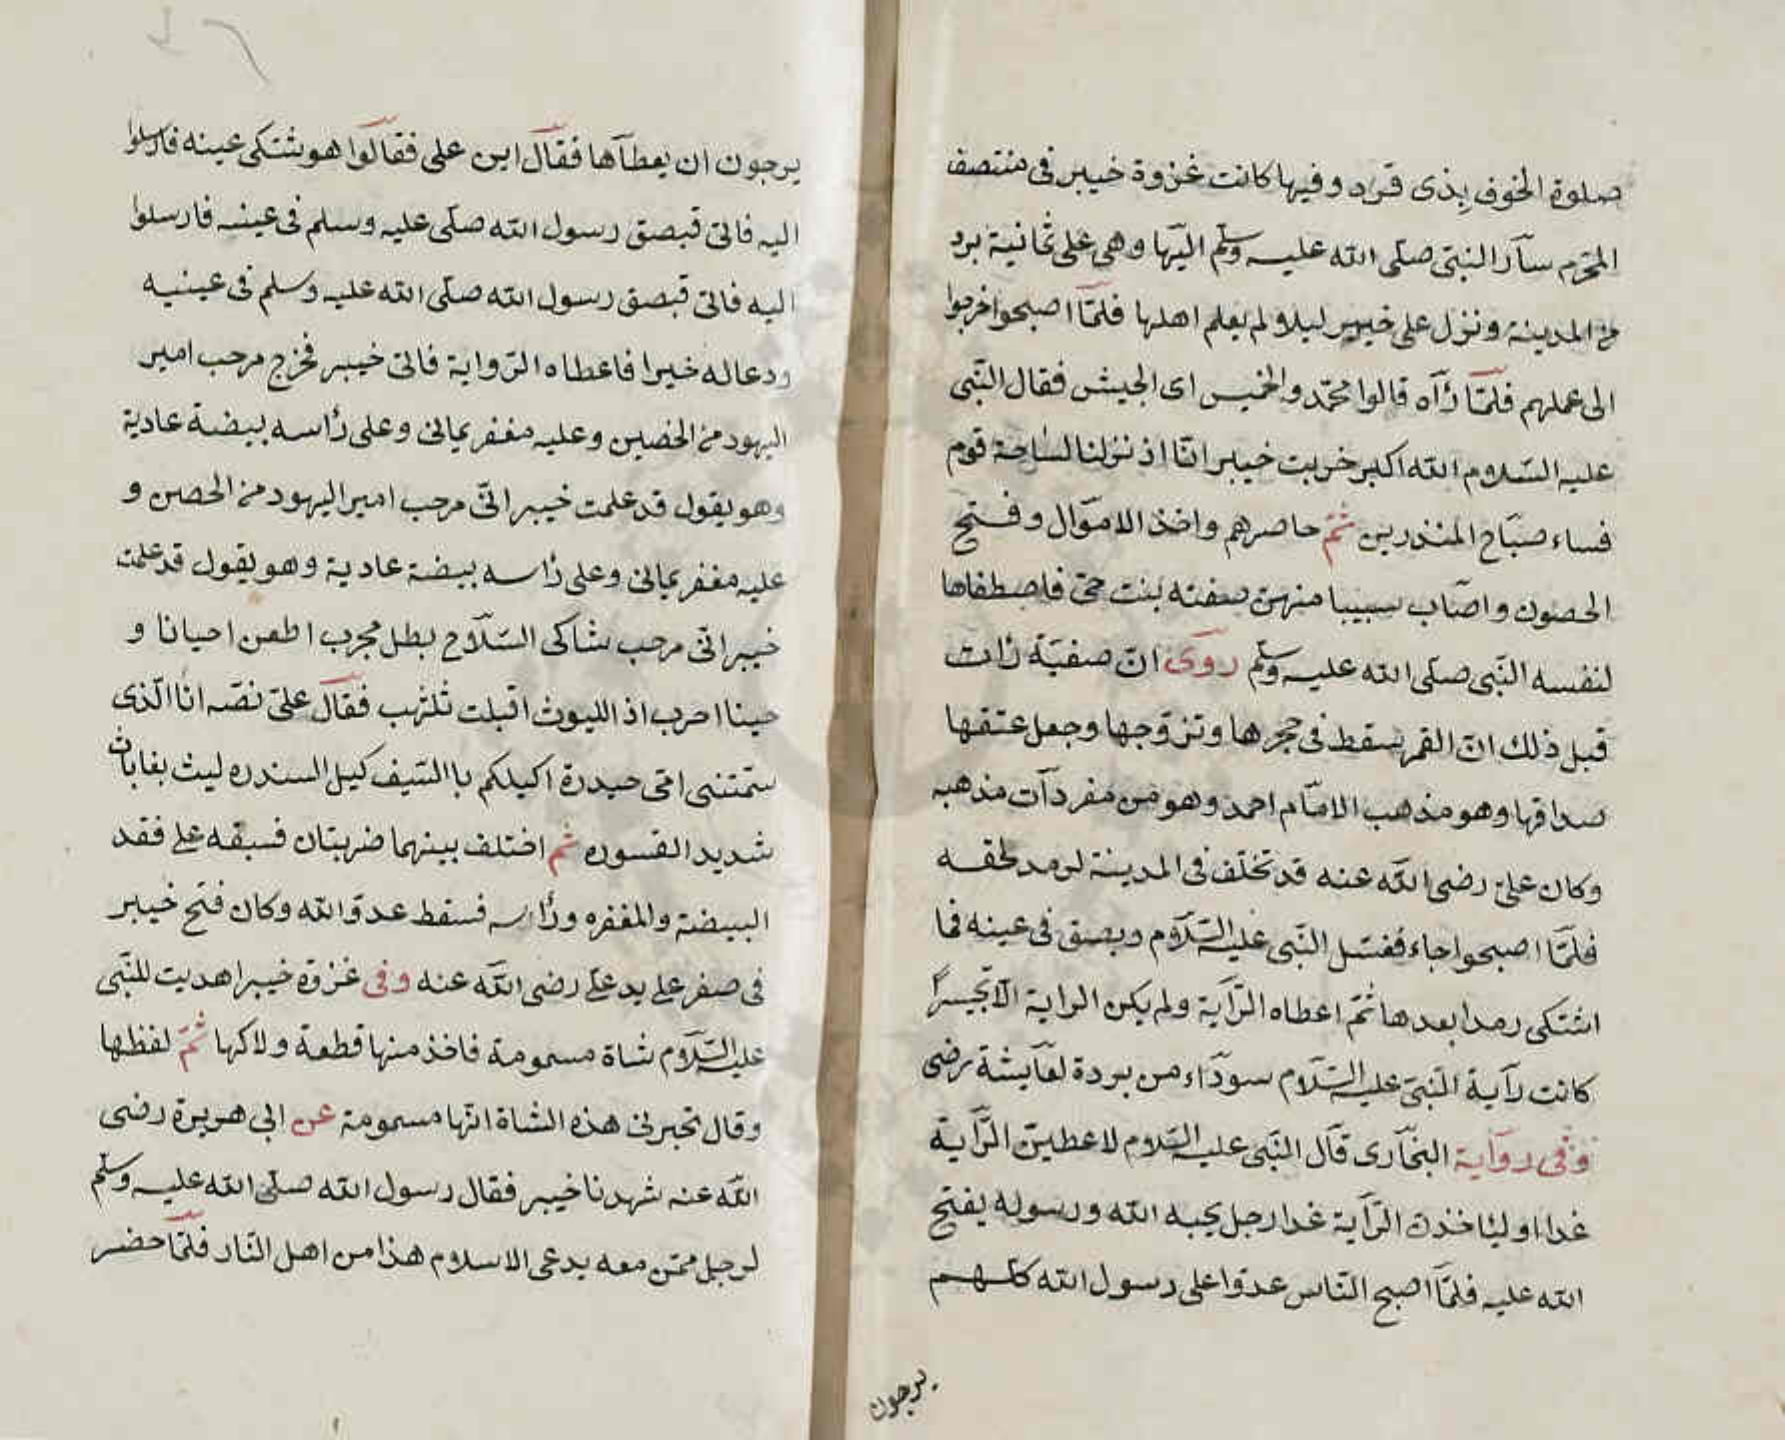 صلوة الخوف بذى قرد وفيها كانت غزوة خيبر فى منتصف
المحرم سار النبى صلى الله عليه وسلم اليها وهى على ثمانية برد
من المدينة ونزل على خيبر ليلا ولم يعلم اهلها فلما اصبحوا خرجوا
الى عملهم فلما رآه قالوا محمد والخميس اى الجيش فقال النبى
عليه السلام الله اكبر خربت خيبر انا اذ نزلنا لساحة قوم
فساء صباح المنذرين ثم حاصرهم واخذ الاموال وفتح
الحصون واصاب سبيبا منهن صفته بنت حى فاصطفاها
لنفسه النبى صلى الله عليه وسلم روى ان صفية رات
قبل ذلك ان القمر سقط فى حجرها وتزوجها وجعل عتقها
صداقها وهو مذهب الامام احمد وهو من مفردات مذهبه
وكان على رضى الله عنه قد تخلف فى المدينة لرمد لحقه
فلما اصبحوا جاء فغسل النبى عليه السلام وبصق فى عينه فما
اشتكى رمدا بعدها ثم اعطاه الراية ولم يكن الراية الا بخيبر
كانت راية النبى عليه السلام سوداء من بردة لعايشة رضى
وفى رواية البخارى قال النبى عليه السلام لاعطين الراية
غدا او لياخذن الراية غدا رجل يحبه الله ورسوله يفتح
الله عليه فلما اصبح الناس عدوا على رسول الله كلهم
يرجون
يرجون ان يعطاها فقال اين على فقالوا هو شتكى عينه فارسلوا
اليه فاتى قبصق رسول الله صلى عليه وسلم فى عينه فارسلوا
اليه فاتى قبصق رسول الله صلى الله عليه وسلم فى عينيه
ودعا له خيرا فاعطاه الرواية فاتى خيبر فخرج مرحب امير
اليهود من الحصين وعليه مغفر يمانى وعلى راسه بيضة عادية
وهو يقول قد علمت خيبر انى مرحب امير اليهود من الحصن و
عليه مغفر يمانى وعلى راسه بيضة عادية وهو يقول قد علمت
خيبر انى مرحب شاكى السلاح بطل مجرب اطعن احيانا و
حينا احرب اذ الليوث اقبلت تلثهب فقال على نصه انا الذى
ستمتنى امى حيدرة اكيلكم با السيف كيل السندره ليث بغابات
شديد القسوره ثم اختلف بينهما ضربتان فسبقه على فقد
البيضة والمغفره وراسه فسقط عدو الله وكان فتح خيبر
فى صفر على يد على رضى الله عنه وفى غزوة خيبر اهديت للنبى
عليه السلام شاة مسمومة فاخذ منها قطعة ولاكها ثم لفظها
وقال تخبرنى هذه الشاة انها مسمومة عن ابى هريرة رضى
الله عنه شهدنا خيبر فقال رسول الله صلى الله عليه وسلم
لرجل ممن معه يدعى الاسلام هذا من اهل النار فلما حضر